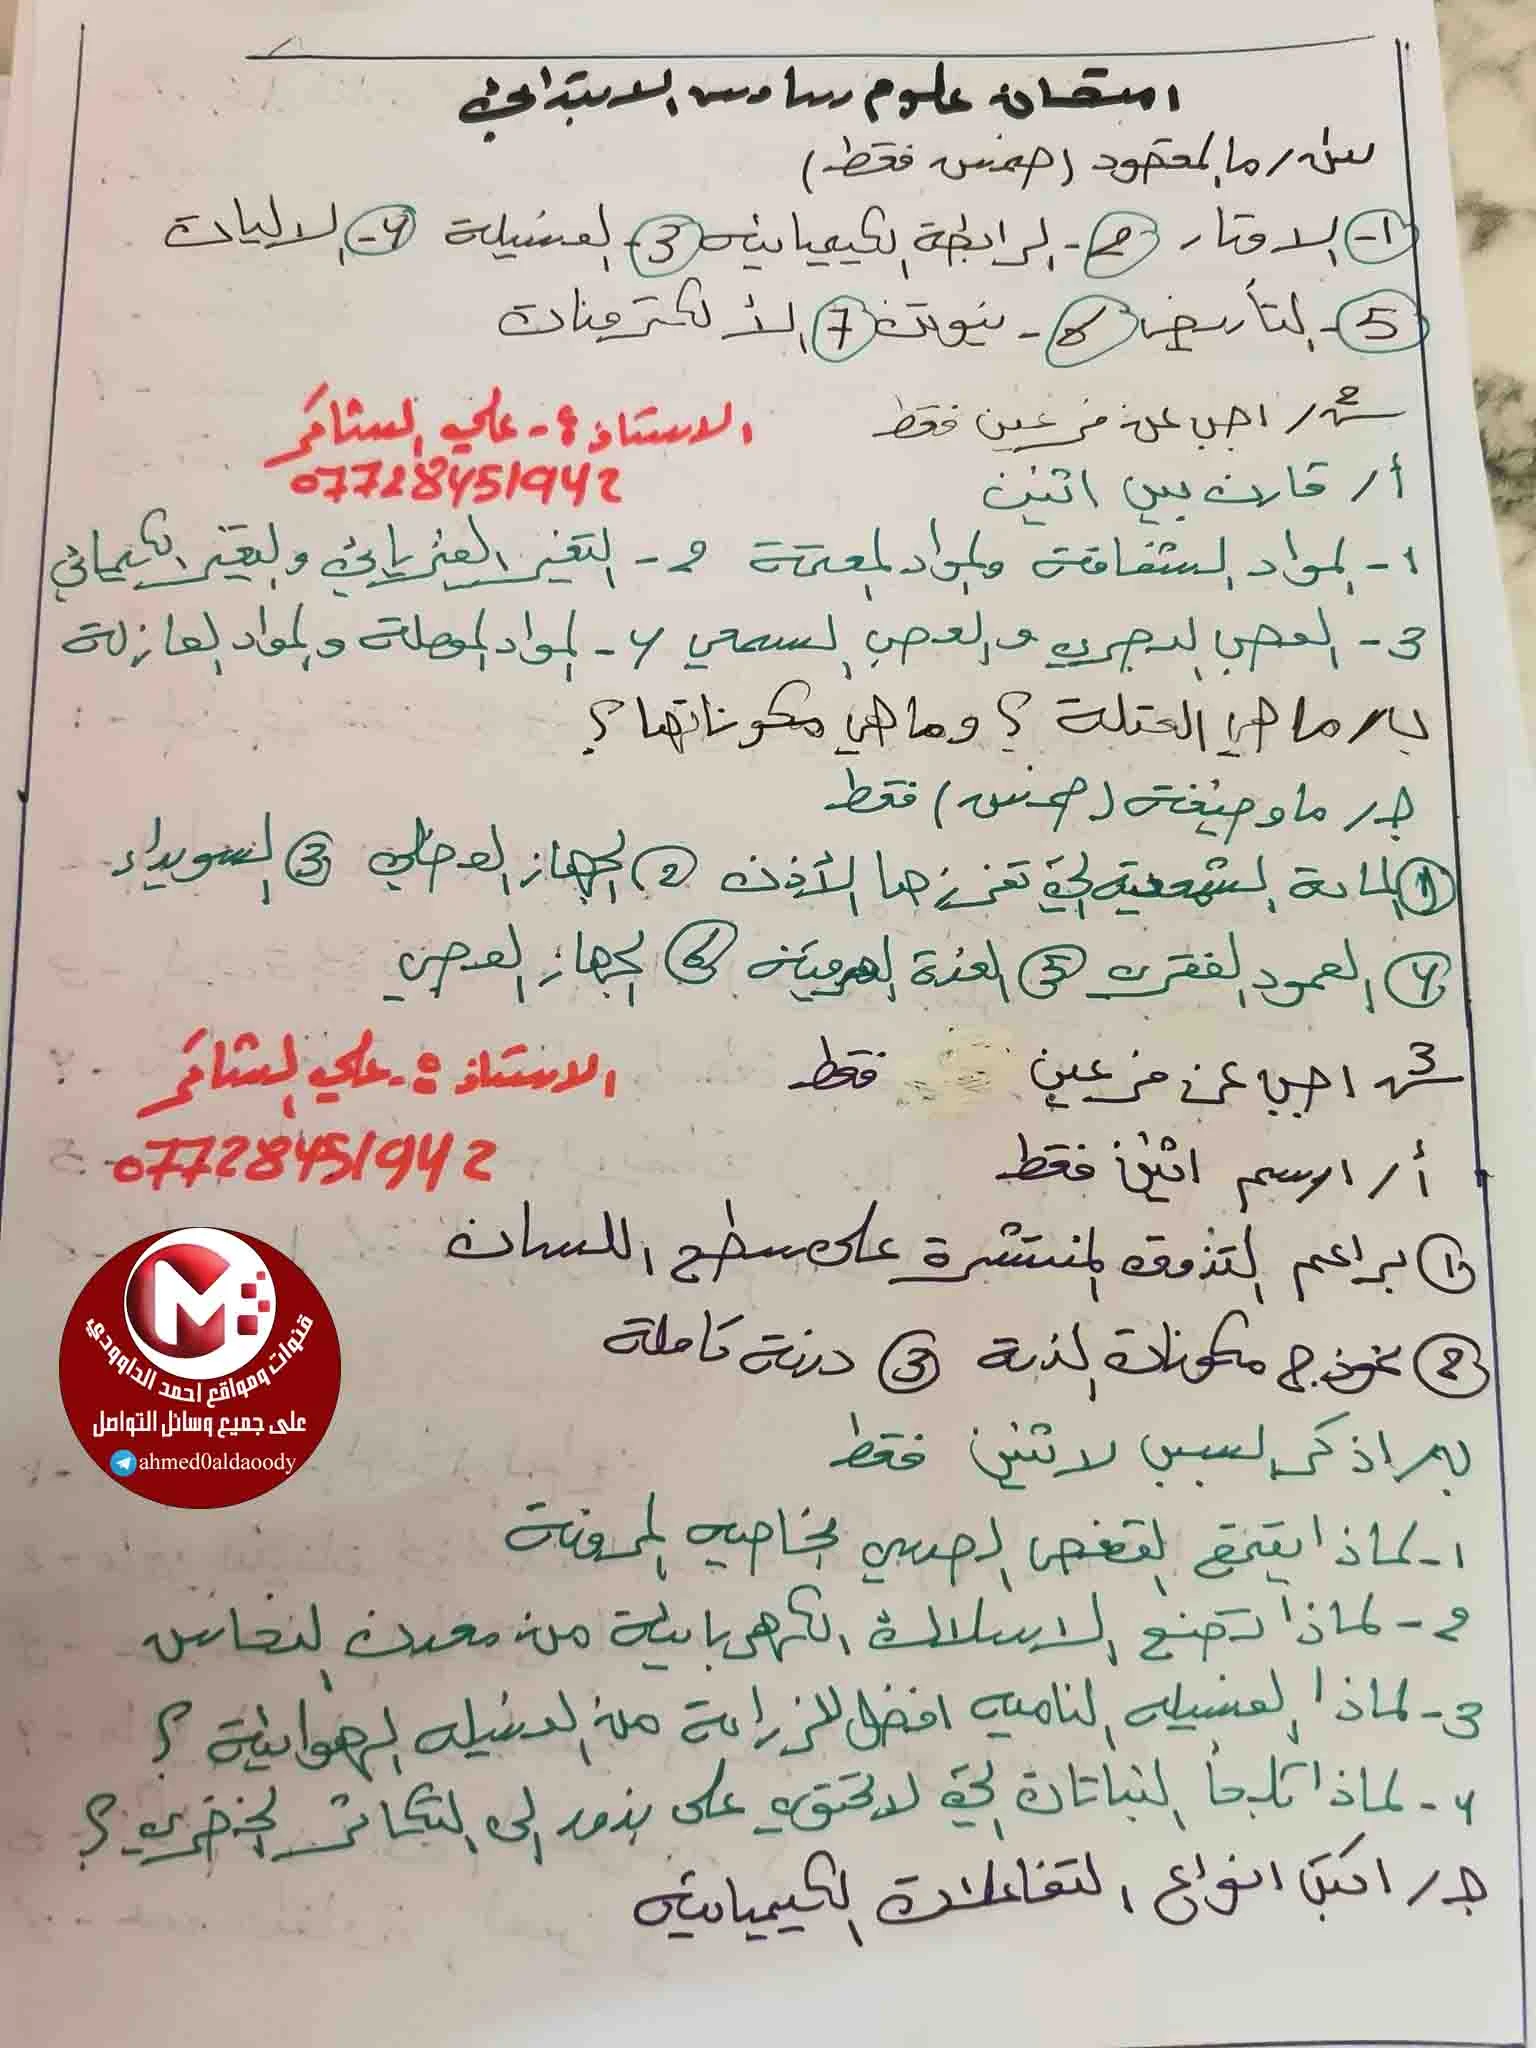 امتحان علوم سادس الابتدائي
س١/ ما المقصود (خمس فقط)
1- الاوتار 2- الرابطة الكيميائيه 3- الفسيلة 4- الاليات
5- التأريض 6- نيوتن 7 الألكترونات
س2/ اجب عن فرعين فقط
الاستاذ :- علي الشاكر
07728451942
أ/ قارن بين اثنين
1- المواد الشفافة والمواد المعتمة 2- التغير الفيزيائي والتغير الكيميائي
3- العصب البصري والعصب السمعي 4- المواد الموصلة والمواد العازلة
ب/ ما هي العتلة ؟ وما هي مكوناتها ؟
جـ/ ما وضيفة (خمس) فقط
1 المادة الشمعية التي تفرزها الأذن 2 الجهاز العضلي 3 السويداء
4 العمود الفقري 5 الغدة العرقية 6 الجهاز العصبي
س3 اجب عن فرعين فقط
الاستاذ :- علي الشاكر
07728451942
أ/ ارسم اثنين فقط
1 براعم التذوق المنتشرة على سطح اللسان
2 نموذج مكونات الذرة 3 درنة كاملة
ب/ اذكر السبب لاثنين فقط
1- لماذا يتمتع القفص الصدري بخاصيه المرونة
2- لماذا تصنع الاسلاك الكهربائية من معدن النحاس
3- لماذا الفسيله الناميه افضل للزراعة من الفسيله الهوائية ؟
4- لماذا تلجأ النباتات التي لا تحتوي على بذور الى التكاثر الخضري ؟
جـ/ اكتب انواع التفاعلات الكيميائيه
قنوات ومواقع احمد الداوودي
على جميع وسائل التواصل
ahmed0aldaoody